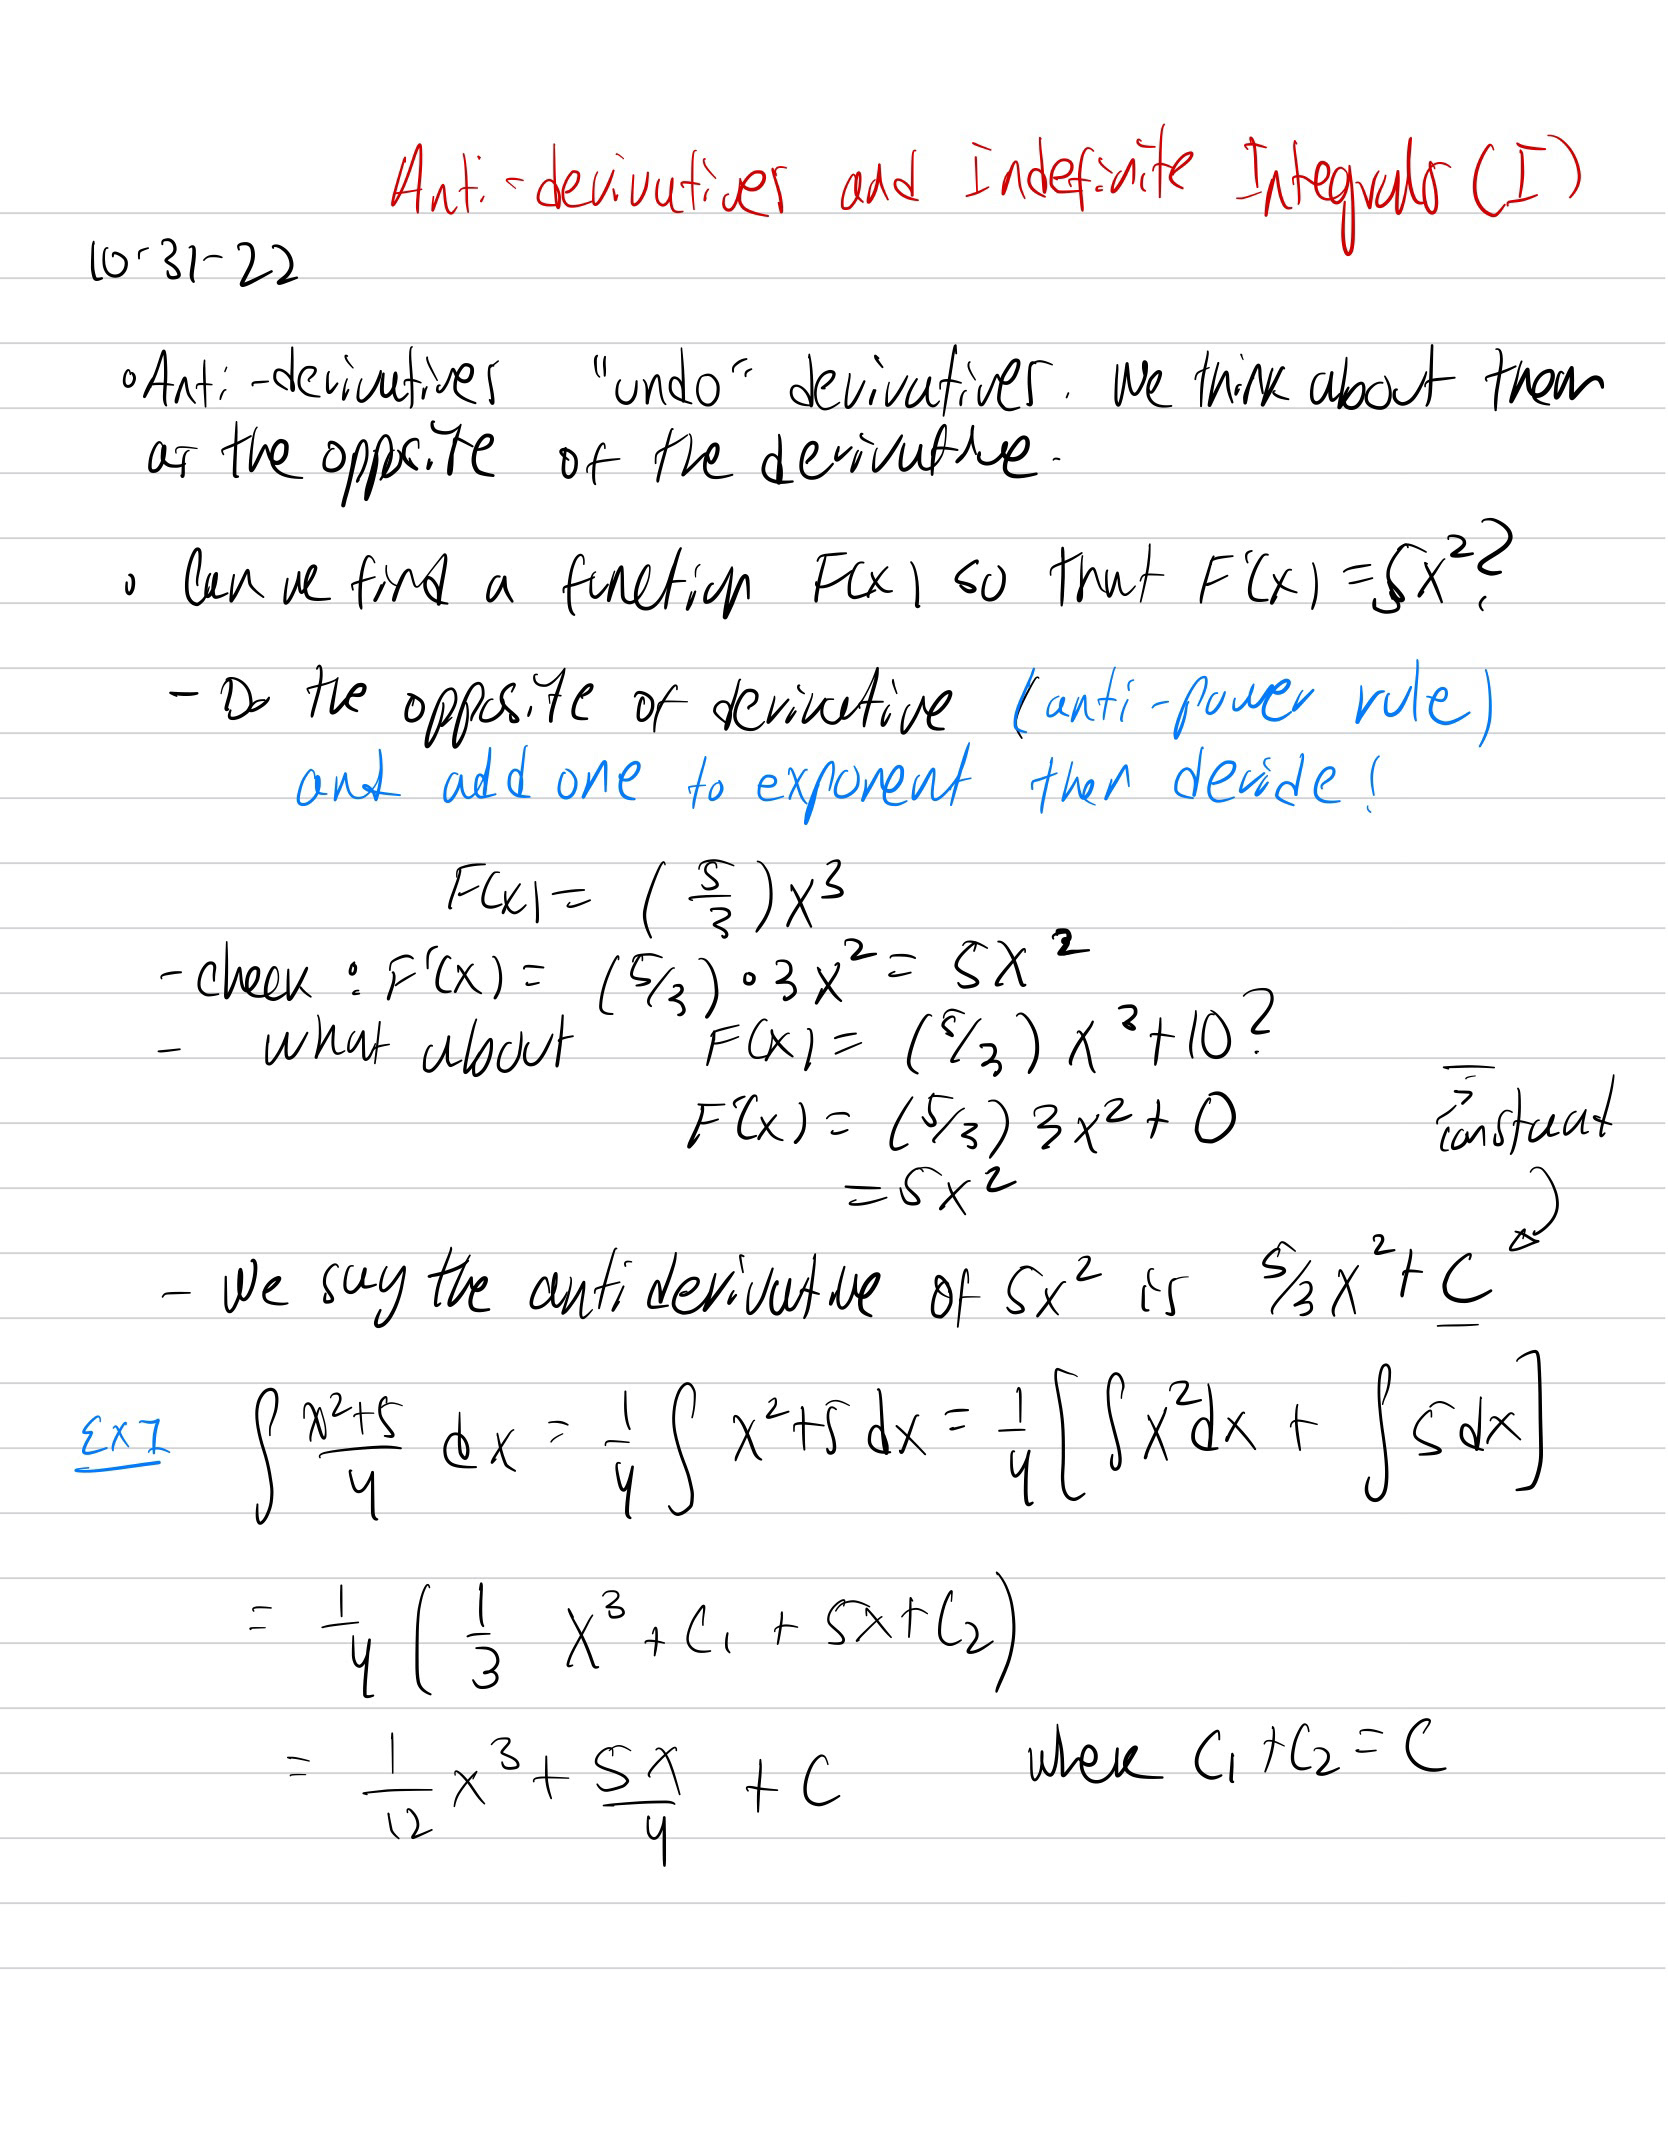 Anti-derivatives and Indefinite Integrals (I)
10-31-22
• Anti-derivatives "undo" derivatives. We think about them
as the opposite of the derivative.
• Can we find a function F(x) so that F'(x) = 5x²?
- Do the opposite of derivative (anti-power rule)
and add one to exponent then devide!
F(x) = (5/3)x³
- check : F'(x) = (5/3) • 3x² = 5x²
- what about F(x) = (5/3) x³ + 10?
F'(x) = (5/3) 3x² + 0
constant
= 5x²
- We say the antiderivative of 5x² is 5/3 x² + C
Ex 1 ∫ (x²+5)/4 dx = 1/4 ∫ x²+5 dx = 1/4 [∫ x² dx + ∫ 5 dx]
= 1/4 (1/3 x³ + C₁ + 5x + C₂)
= 1/12 x³ + 5x/4 + C where C₁ + C₂ = C